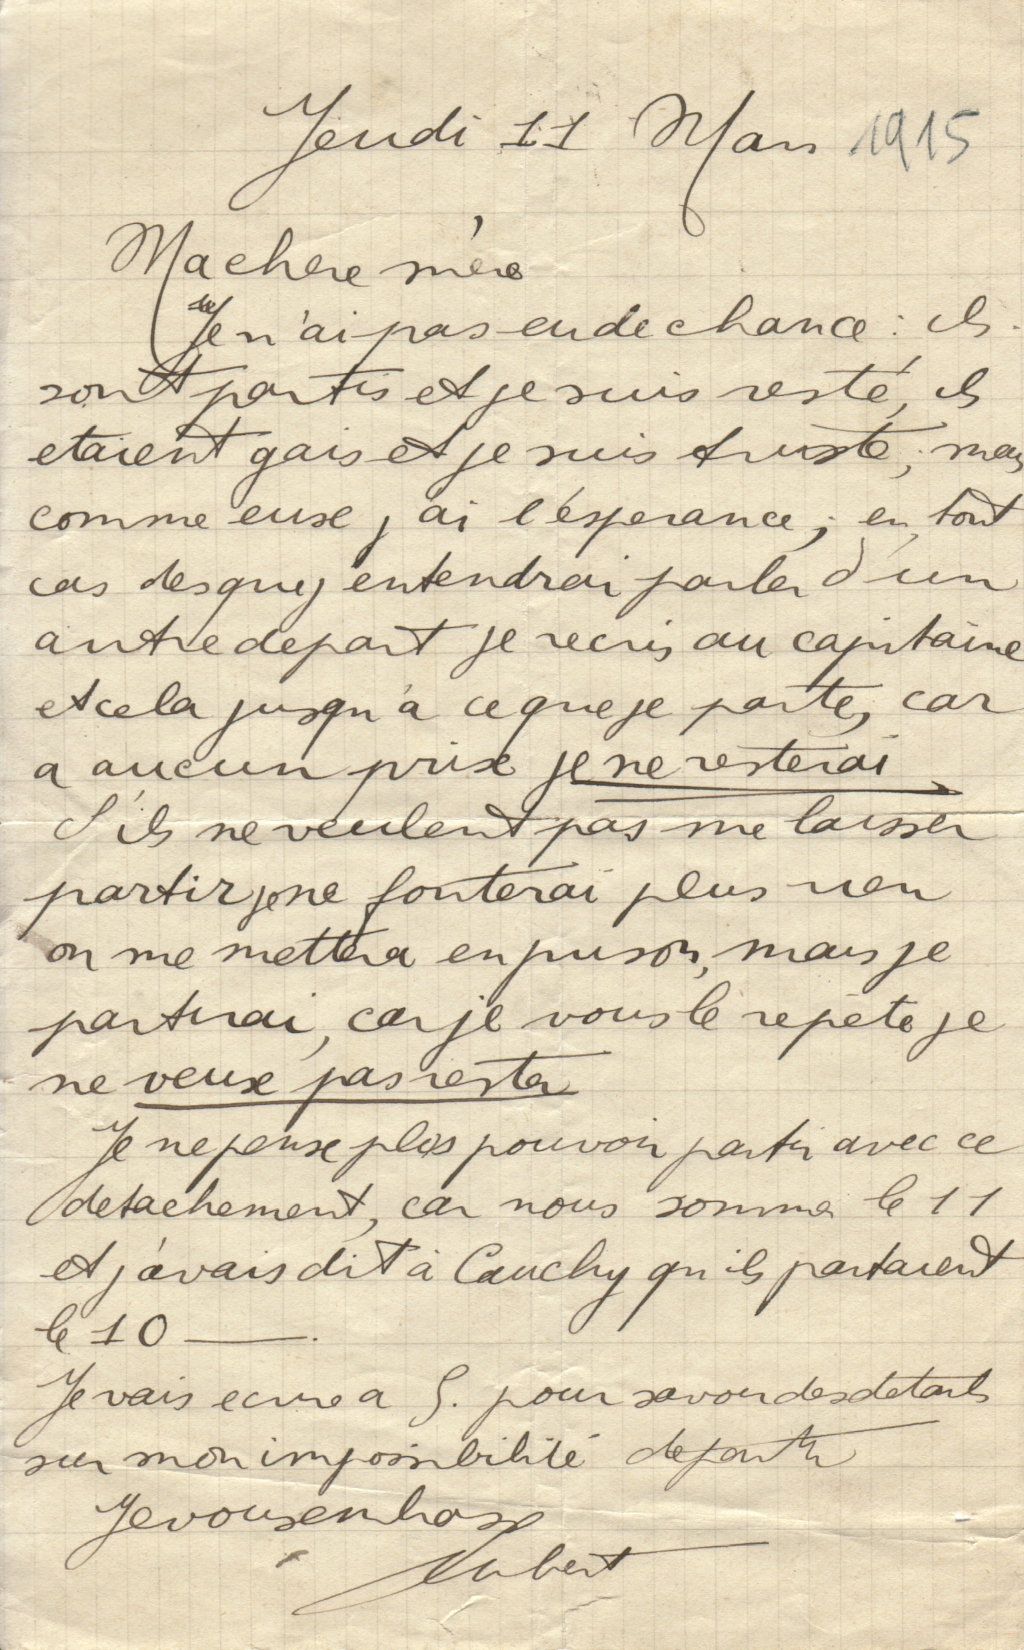 Jeudi 11 Mars 1915
Ma chere mère
Je n'ai pas eu de chance : ils
sont partis et je suis resté, ils
etaient gais et je suis triste, mais
comme eux j'ai l'ésperance ; en tout
cas des que j entendrai parler d'un
autre depart je recris au capitaine
et cela jusqu'à ce que je parte, car
a aucun prix je ne resterai
S'ils ne veulent pas me laisser
partir je ne fouterai plus rien
on me mettera en prison, mais je
partirai, car je vous le repète je
ne veux pas rester
Je ne pense plus pouvoir partir avec ce
detachement, car nous sommes le 11
et j'avais dit à Cauchy qu ils partaient
le 10 ——.
Je vais ecrire a G. pour savoir des details
sur mon impossibilité de partir
Je vous embrasse
Hubert